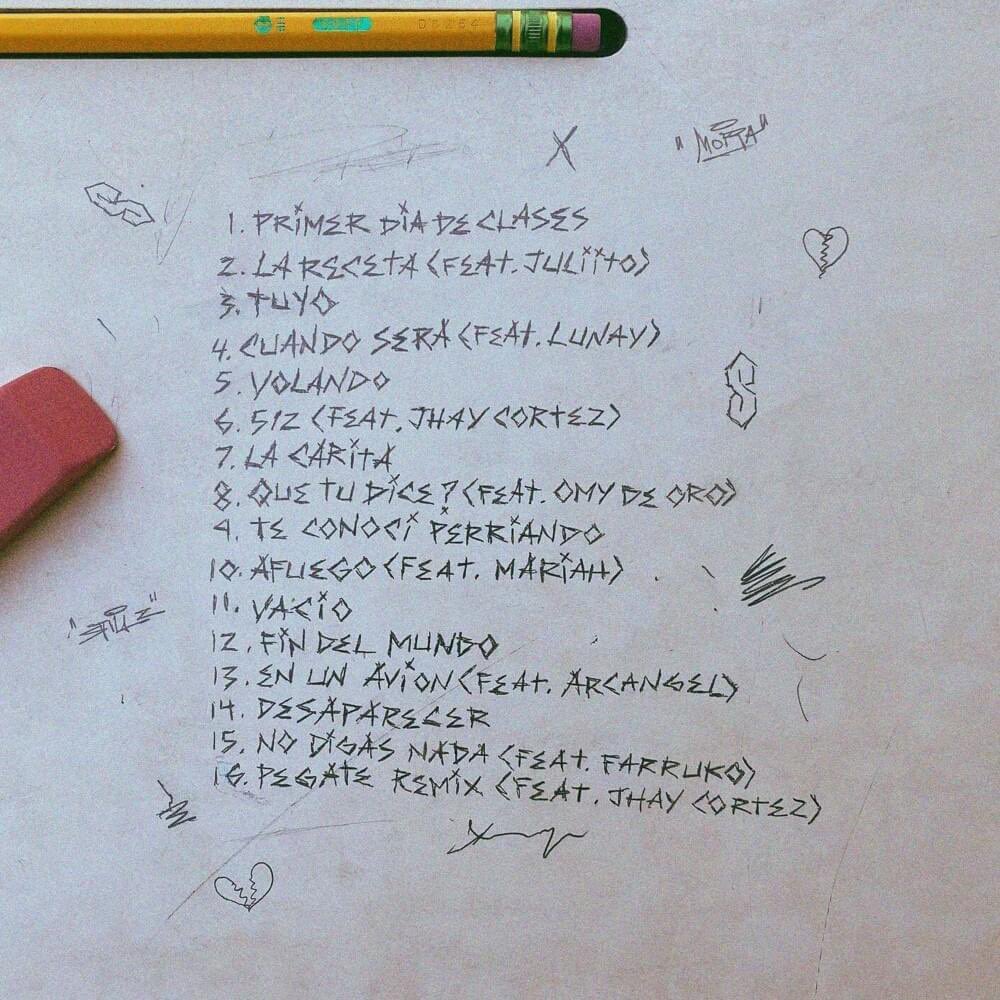 HB
"MOFTA"
1. PRIMER DIA DE CLASES
2. LA RECETA (FEAT. JULIITO)
3. TUYO
4. CUANDO SERÁ (FEAT. LUNAY)
5. VOLANDO
6. 512 (FEAT. JHAY CORTEZ)
7. LA CARITA
8. QUE TU DICE? (FEAT. OMY DE ORO)
9. TE CONOCÍ PERRIANDO
10. AFUEGO (FEAT. MARIAH)
11. VACIO
12. FIN DEL MUNDO
13. EN UN AVION (FEAT. ARCANGEL)
14. DESAPARECER
15. NO DIGAS NADA (FEAT. FARRUKO)
16. PEGATE REMIX (FEAT. JHAY CORTEZ)